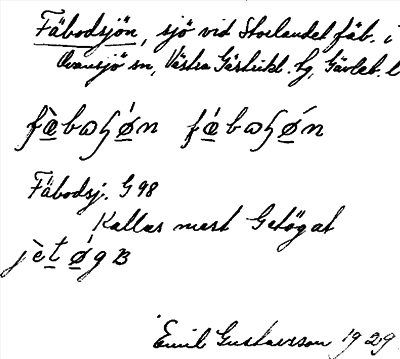 Fäbodsjön, sjö vid Storlandet fäb. i
Ovansjö sn, Västra Gästrikl. hg, Gävleb. l
fæ̀baɷɧǿn fǽbaɧǿn
Fäbodsj. G 98
Kallas mest Getögat
jètǿgɞ
Emil Gustavsson 1929